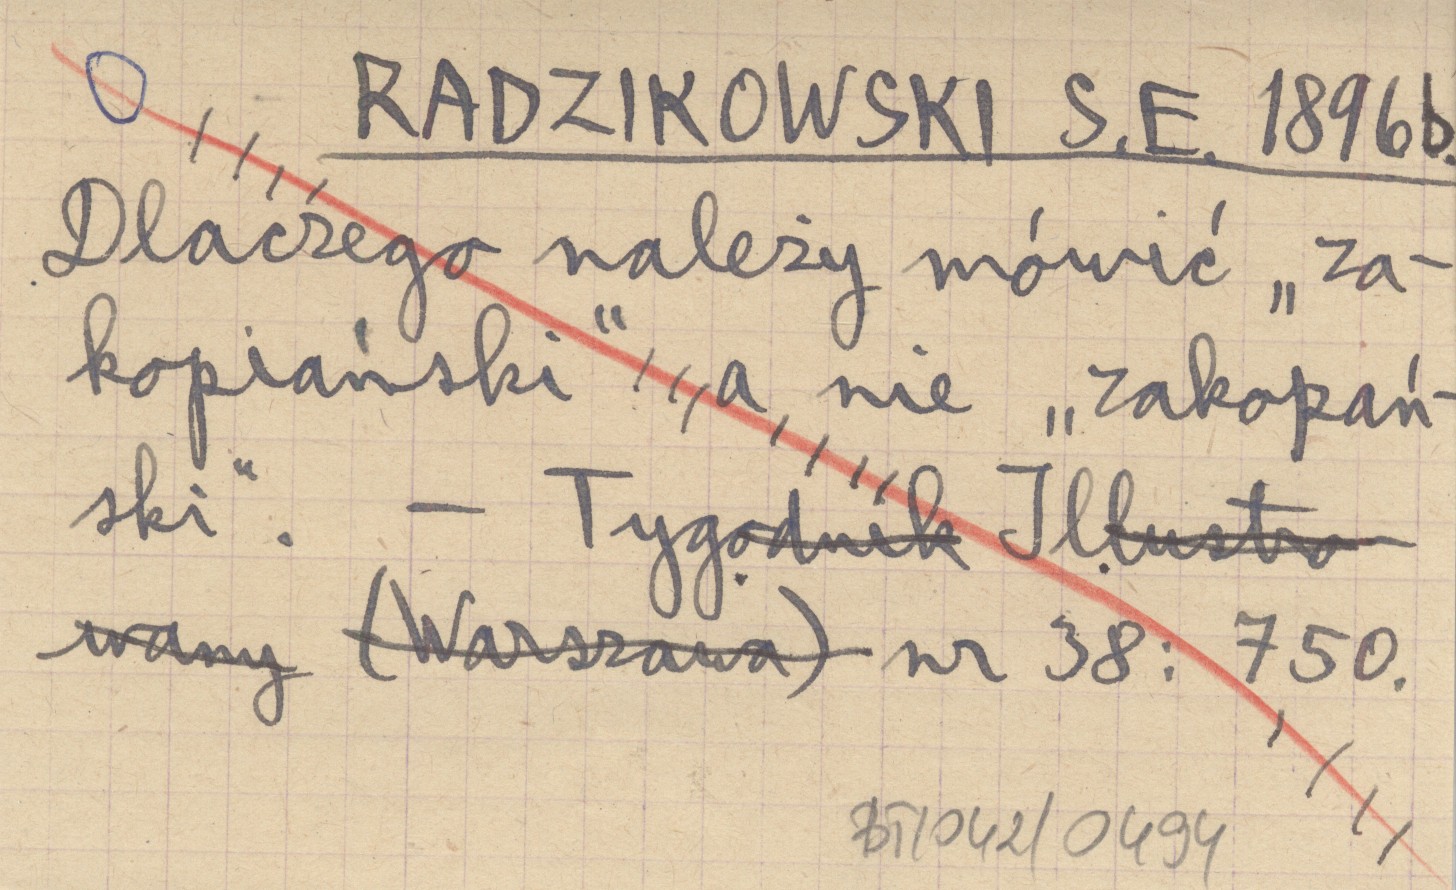 RADZIKOWSKI S.E. 1896b.
Dlaczego należy mówić „za-
kopiański“, a nie „zakopań-
ski“. — Tygodnik Illustro
wany (Warszawa) nr 38: 750.
BT/042/0494